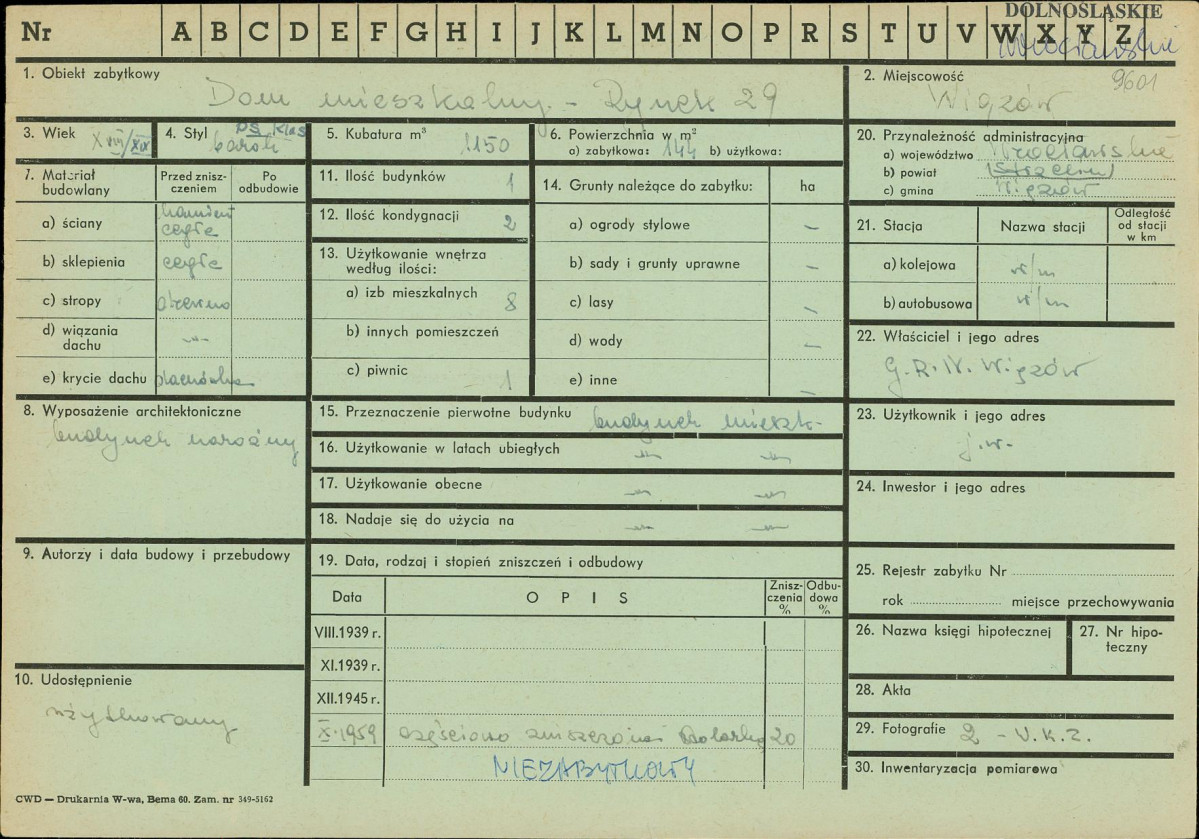 DOLNOŚLĄSKIE
Nr A B C D E F G H I J K L M N O P R S T U V W X Y Z
Wrocławskie
1. Obiekt zabytkowy
Dom mieszkalny - Rynek 29
2. Miejscowość
9601
Wiązów
3. Wiek
XVIII/XIX
4. Styl
ps. klas
barok
5. Kubatura m³
1150
6. Powierzchnia w m²
a) zabytkowa: 144 b) użytkowa:
20. Przynależność administracyjna
a) województwo Wrocławskie
b) powiat (Strzelin)
c) gmina Wiązów
7. Materiał budowlany
Przed zniszczeniem
Po odbudowie
a) ściany
kamień
cegła
b) sklepienia cegła
c) stropy drewno
d) wiązania dachu -"-
e) krycie dachu dachówka
11. Ilość budynków 1
12. Ilość kondygnacji 2
13. Użytkowanie wnętrza według ilości:
a) izb mieszkalnych 8
b) innych pomieszczeń
c) piwnic 1
14. Grunty należące do zabytku: ha
a) ogrody stylowe —
b) sady i grunty uprawne —
c) lasy —
d) wody —
e) inne —
21. Stacja
Nazwa stacji
Odległość od stacji w km
a) kolejowa w/m
b) autobusowa w/m
22. Właściciel i jego adres
G.R.N. Wiązów
8. Wyposażenie architektoniczne
budynek narożny
15. Przeznaczenie pierwotne budynku budynek mieszk.
16. Użytkowanie w latach ubiegłych -"- -"-
17. Użytkowanie obecne -"- -"-
18. Nadaje się do użycia na -"- -"-
23. Użytkownik i jego adres
j.w.
24. Inwestor i jego adres
9. Autorzy i data budowy i przebudowy
19. Data, rodzaj i stopień zniszczeń i odbudowy
Data
O P I S
Zniszczenia %
Odbudowa %
VIII.1939 r.
XI.1939 r.
XII.1945 r.
X.1959 częściowo 20
NIEZABYTKOWY
25. Rejestr zabytku Nr
rok miejsce przechowywania
26. Nazwa księgi hipotecznej
27. Nr hipoteczny
10. Udostępnienie
użytkowany
28. Akta
29. Fotografie 2 - U.K.Z.
30. Inwentaryzacja pomiarowa
CWD — Drukarnia W-wa, Bema 60. Zam. nr 349-5162